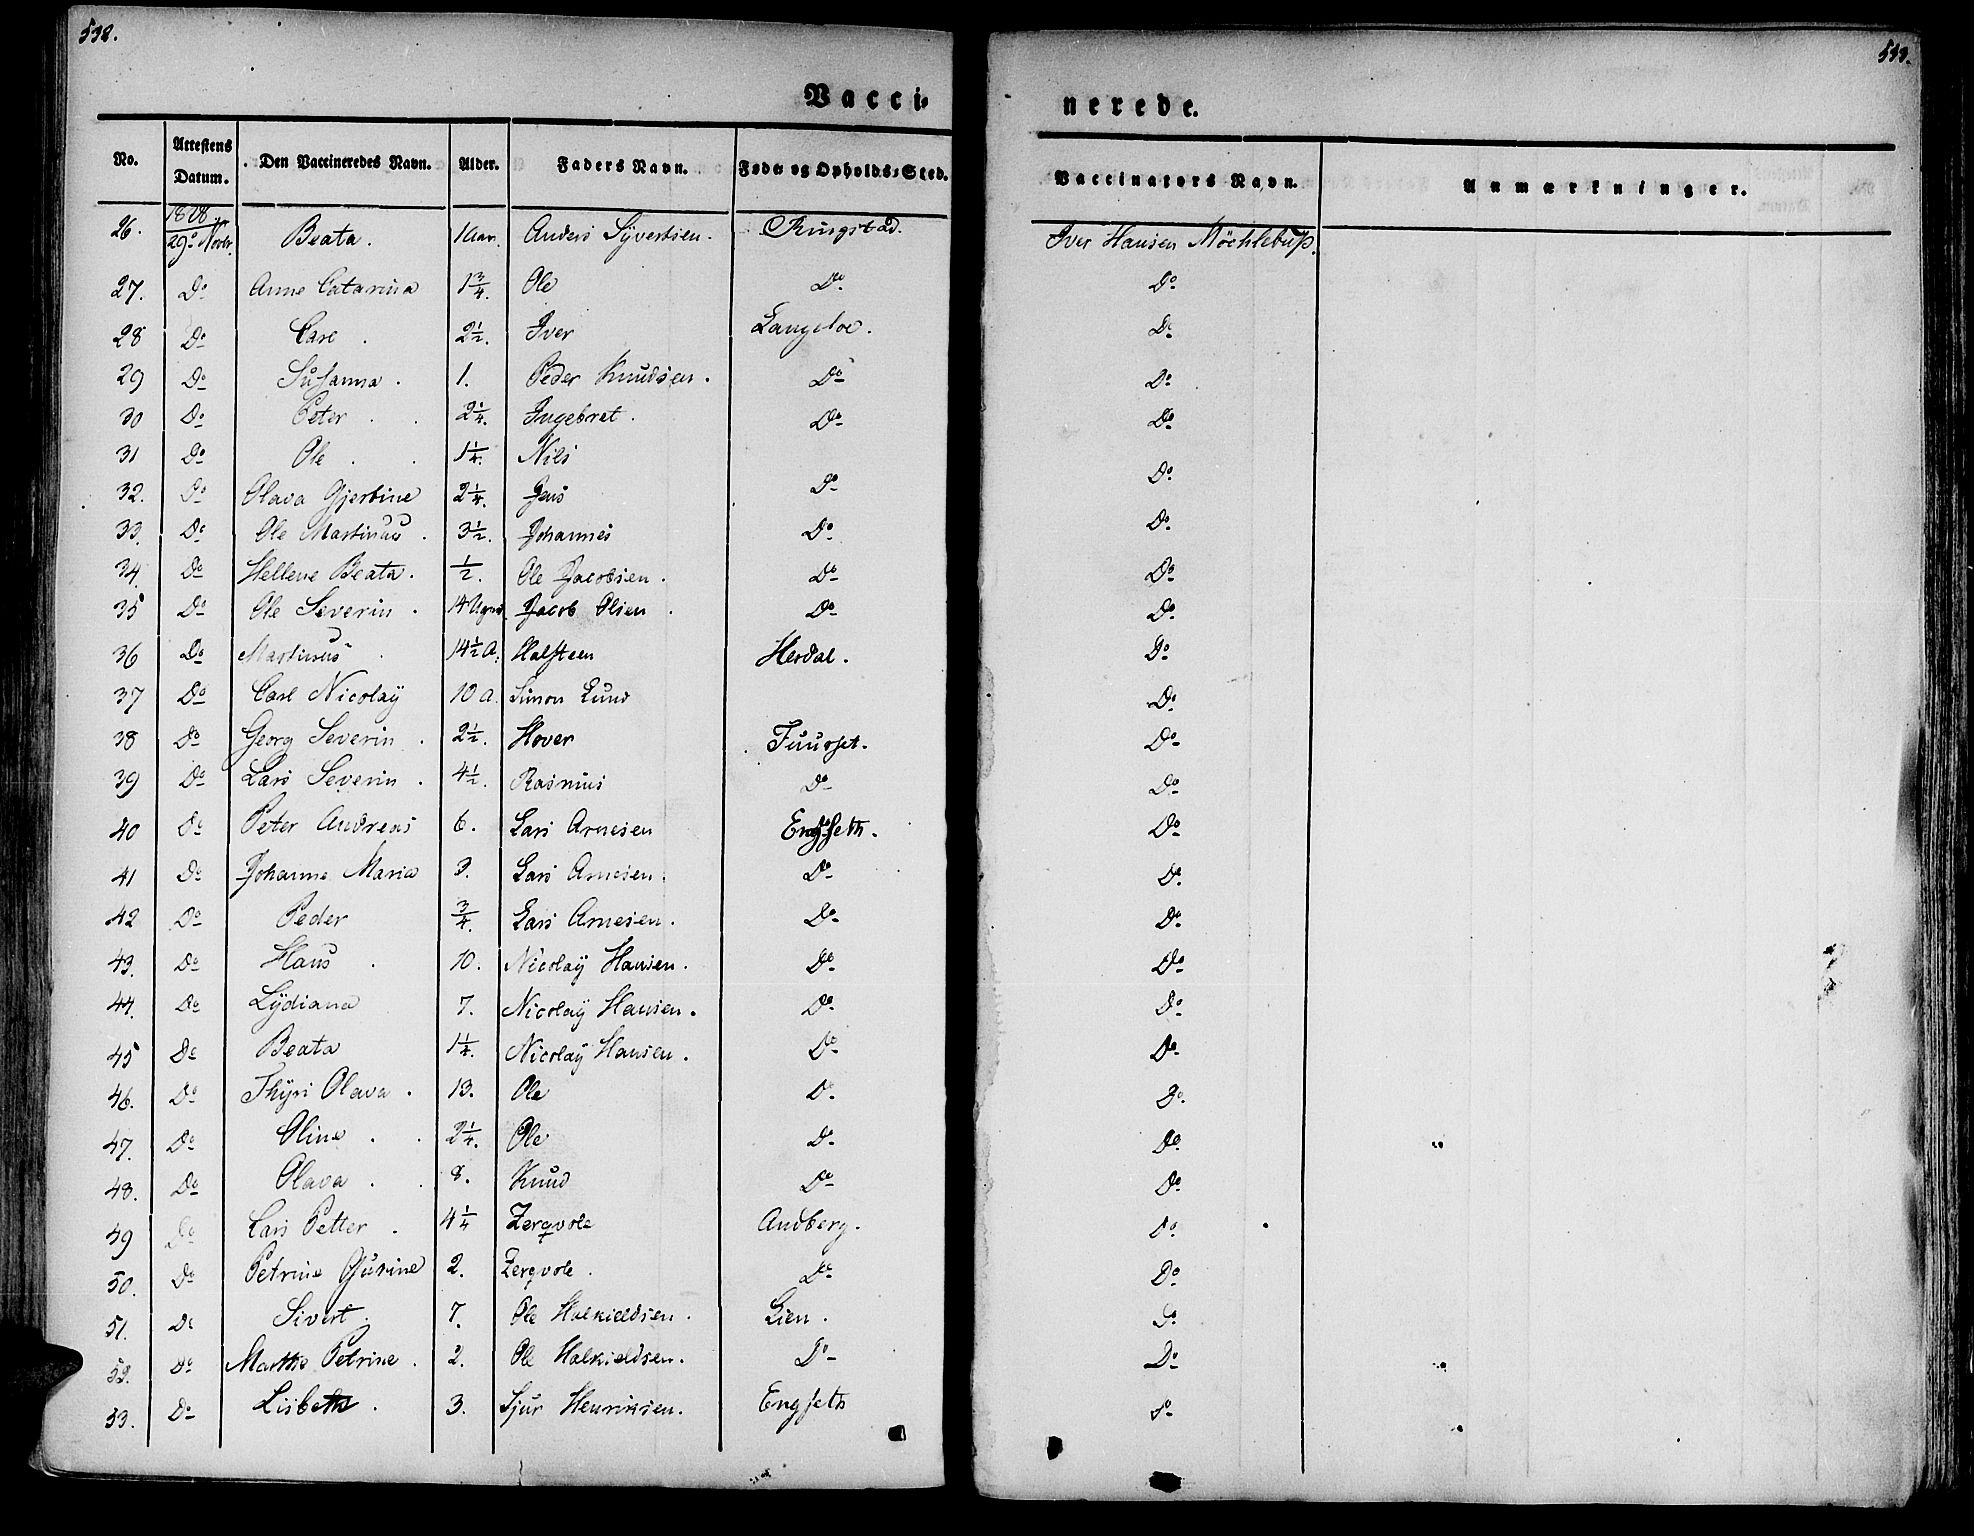 532.
533.
Vacci-
nerede.
No. Attestens Datum. Den Vaccineredes Navn. Alder. Faders Navn. Føde og Opholds-Sted. Vaccinators Navn. Anmærkninger.
26. 1828 29de Novbr. Beata. 1 Aar. Anders Syvertsen. Ringstad. Iver Hansen
27. Do Anne Catarina 1 3/4. Ole Do Do
28 Do Carl. 2 1/2. Iver Langeloe. Do
29 Do Susanna. 1. Peder Knudsen. Do Do
30 Do Peter. 2 1/4. Ingebret. Do Do
31 Do Ole. 1 1/4. Nils
32. Do Olava Gjertine 2 1/4. Jens Do Do
33. Do Ole Martinus. 3 1/2. Johannes Do Do
34. Do Hellene Beata. 1/2. Ole Jacobsen. Do Do
35 Do Ole Severin. 14 Jacob Olsen. Do Do
36 Do Martinus. 14 1/2 A. Halsteen Herdal. Do
37 Do Carl Nicolaÿ 10 A. Simon Lund Do
38 Do Georg Severin. 2 1/2. Hover Tuurset. Do
39 Do Lars Severin. 4 1/2. Rasmus Do Do
40 Do Peter Andreas 6. Lars Arnesen Engseth. Do
41 Do Johanne Maria 3. Lars Arnesen. Do Do
42 Do Peder 3/4. Lars Arnesen. Do Do
43. Do Hans. 10. Nicolaÿ Hansen. Do Do
44. Do Lÿdiana 7. Nicolaÿ Hansen. Do Do
45 Do Beata 1 1/4. Nicolaÿ Hansen. Do Do
46. Do Thÿri Olava. 13. Ole Do Do
47. Do Oline. 2 1/4. Ole Do Do
48. Do Olava. 8. Knud Do Do
49 Do Lars Petter. 4 1/4 Andberg. Do
50. Do Petrine Gurine 2. Do Do
51. Do Sivert. 7. Ole Halkieldsen. Lien. Do
52. Do Marthe Petrine. 2. Ole Halkieldsen. Do Do
53. Do Lisbeth. 3. Sjur Henriksen. Engseth Do